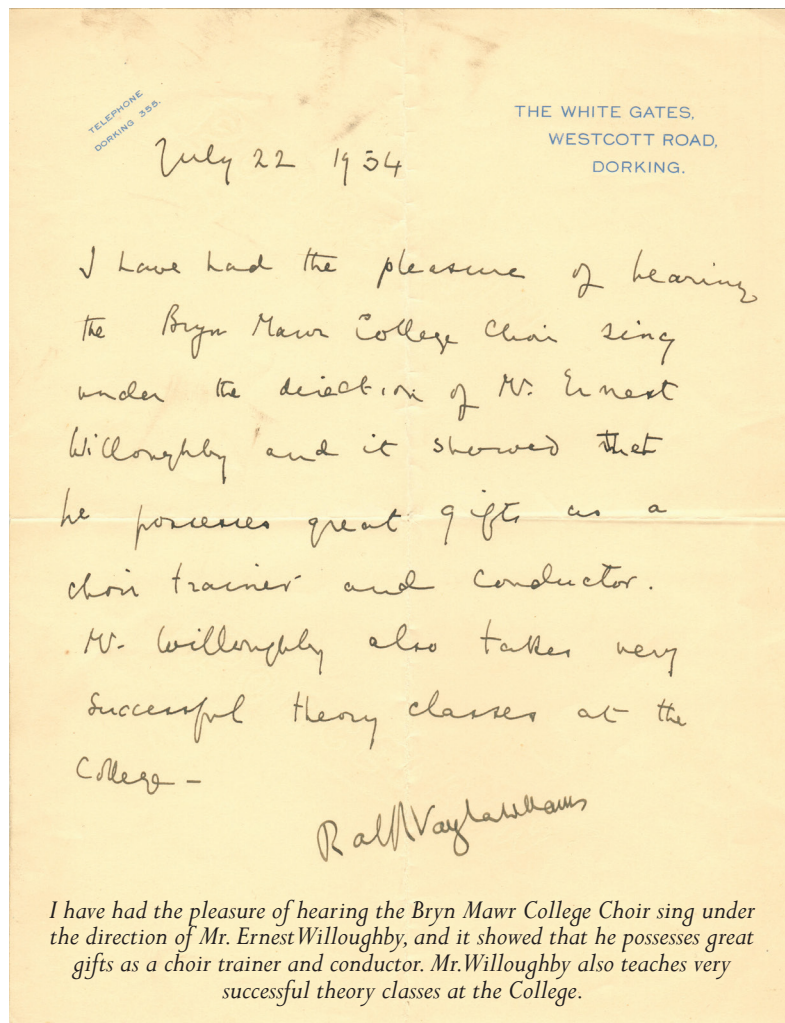 TELEPHONE
DORKING 355.
THE WHITE GATES,
WESTCOTT ROAD,
DORKING.
July 22 1934
I have had the pleasure of hearing
the Bryn Mawr College Choir sing
under the direction of Mr. Ernest
Willoughby and it showed that
he possesses great gifts as a
choir trainer and conductor.
Mr. Willoughby also takes very
successful theory classes at the
College –
Ralph Vaughan Williams
I have had the pleasure of hearing the Bryn Mawr College Choir sing under
the direction of Mr. Ernest Willoughby, and it showed that he possesses great
gifts as a choir trainer and conductor. Mr. Willoughby also teaches very
successful theory classes at the College.